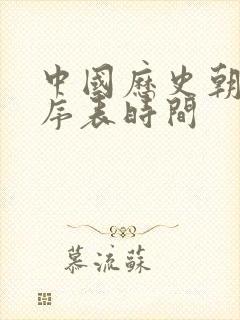 中國歷史朝
序表時間
慕流蘇